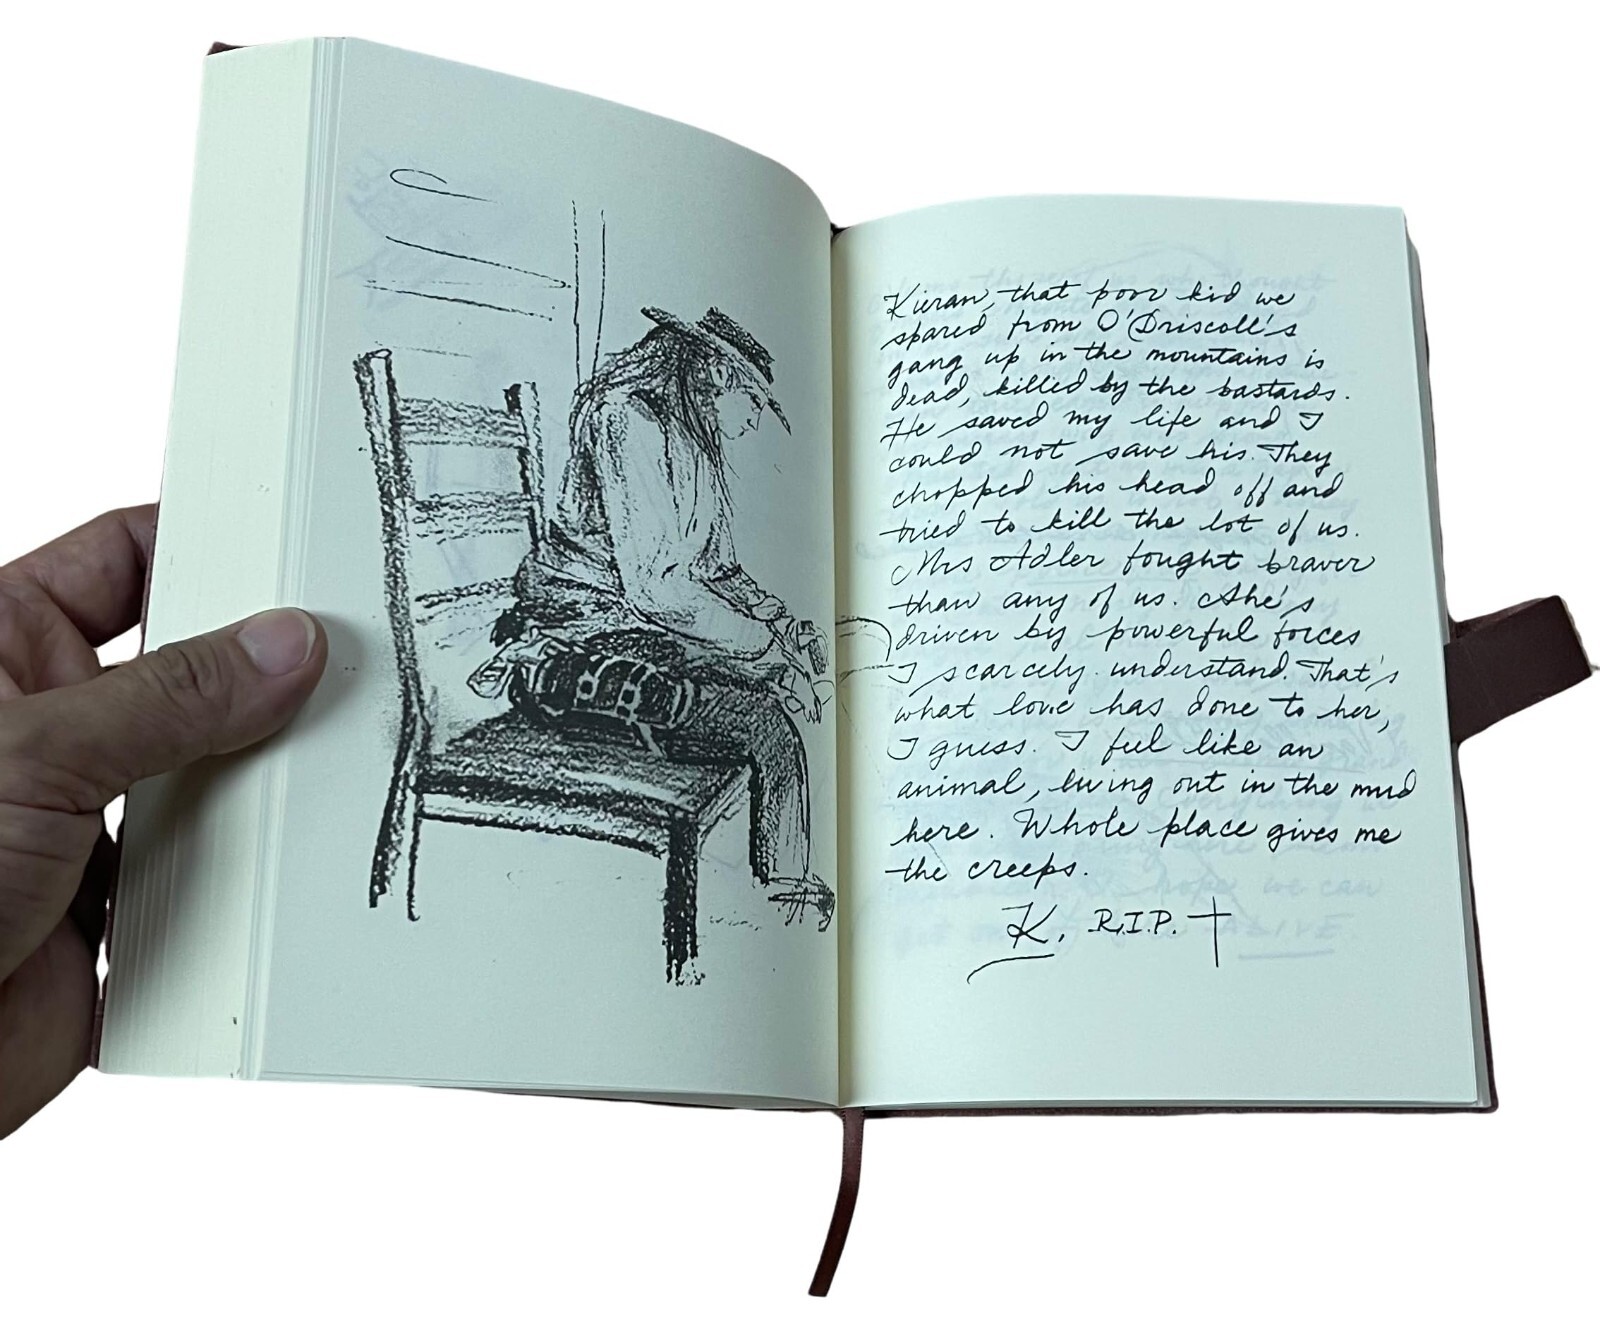 Kieran, that poor kid we
spared from O'Driscoll's
gang up in the mountains is
dead, killed by the bastards.
He saved my life and I
could not save his. They
chopped his head off and
tried to kill the lot of us.
Mrs Adler fought braver
than any of us. She's
driven by powerful forces
I scarcely understand. That's
what love has done to her,
I guess. I feel like an
animal, living out in the mud
here. Whole place gives me
the creeps.
K. R.I.P.